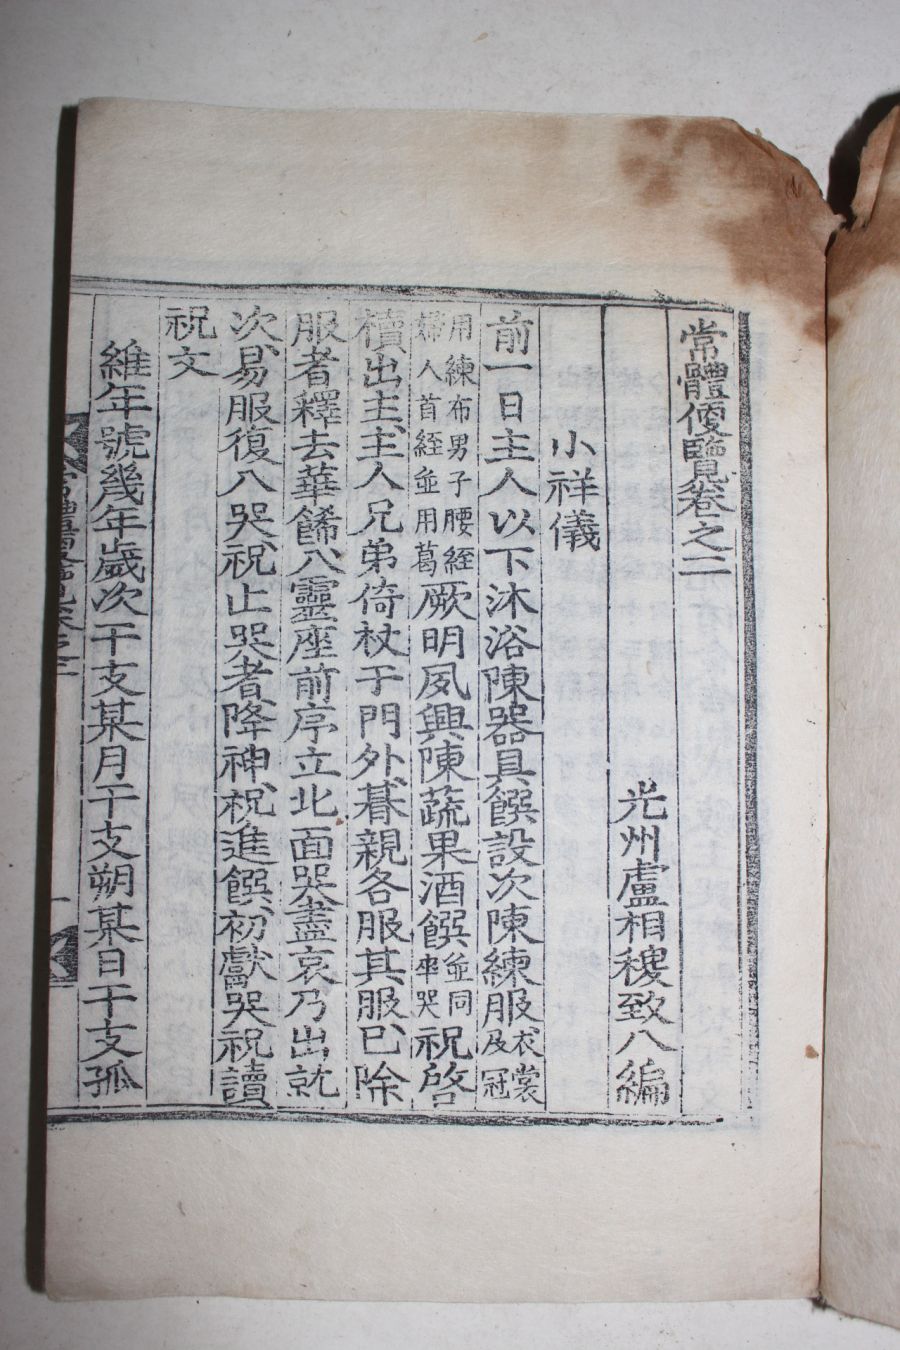 常體便覽卷之二
光州盧相稷致八編
小祥儀
前一日主人以下沐浴陳器具饌設次陳練服衣裳及冠
用練布男子腰絰婦人首絰並用葛厥明夙興陳蔬果酒饌並同卒哭祝啓
櫝出主主人兄弟倚杖于門外朞親各服其服已除
服者釋去華餙入靈座前序立北面哭盡哀乃出就
次易服復入哭祝止哭者降神祝進饌初獻哭祝讀
祝文
維年號幾年歲次干支某月干支朔某日干支孤
常體便覽卷之二 一